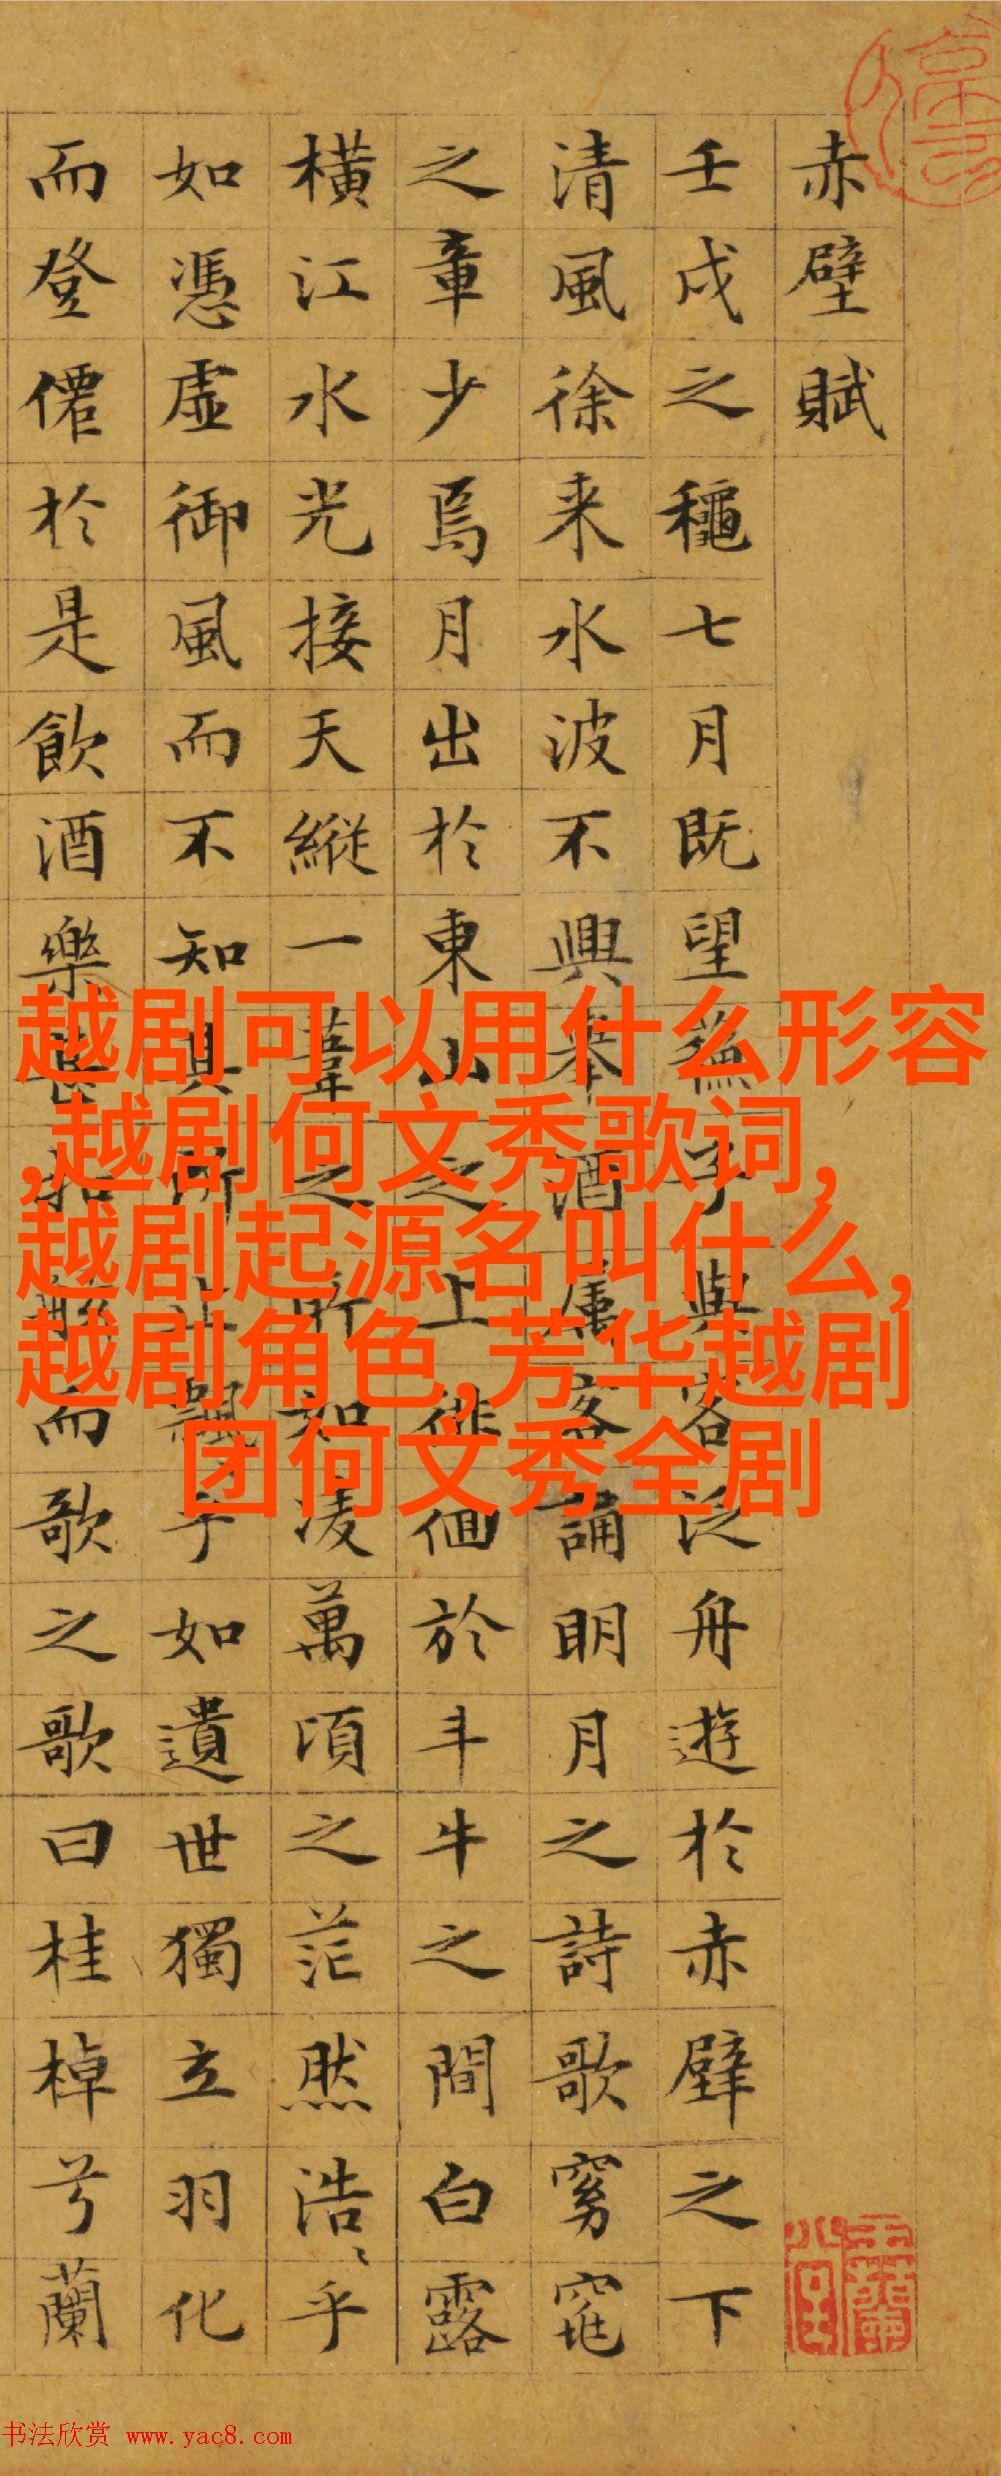 赤壁賦
壬戌之穐七月既望蘓子與客泛舟遊於赤壁之下
清風徐来水波不興舉酒属客誦明月之詩歌窈窕
之章少焉月出於東山之上徘徊於斗牛之間白露
橫江水光接天縱一葦之所如凌萬頃之茫然浩〻乎
如憑虛御風而不知其所止飄乎如遺世獨立羽化
而登僊於是飲酒樂甚扣舷而歌之歌曰桂棹兮蘭
越剧可以用什么形容
,越剧何文秀歌词,
越剧起源名叫什么,
越剧角色,芳华越剧
团何文秀全剧
书法欣赏 www.yac8.com